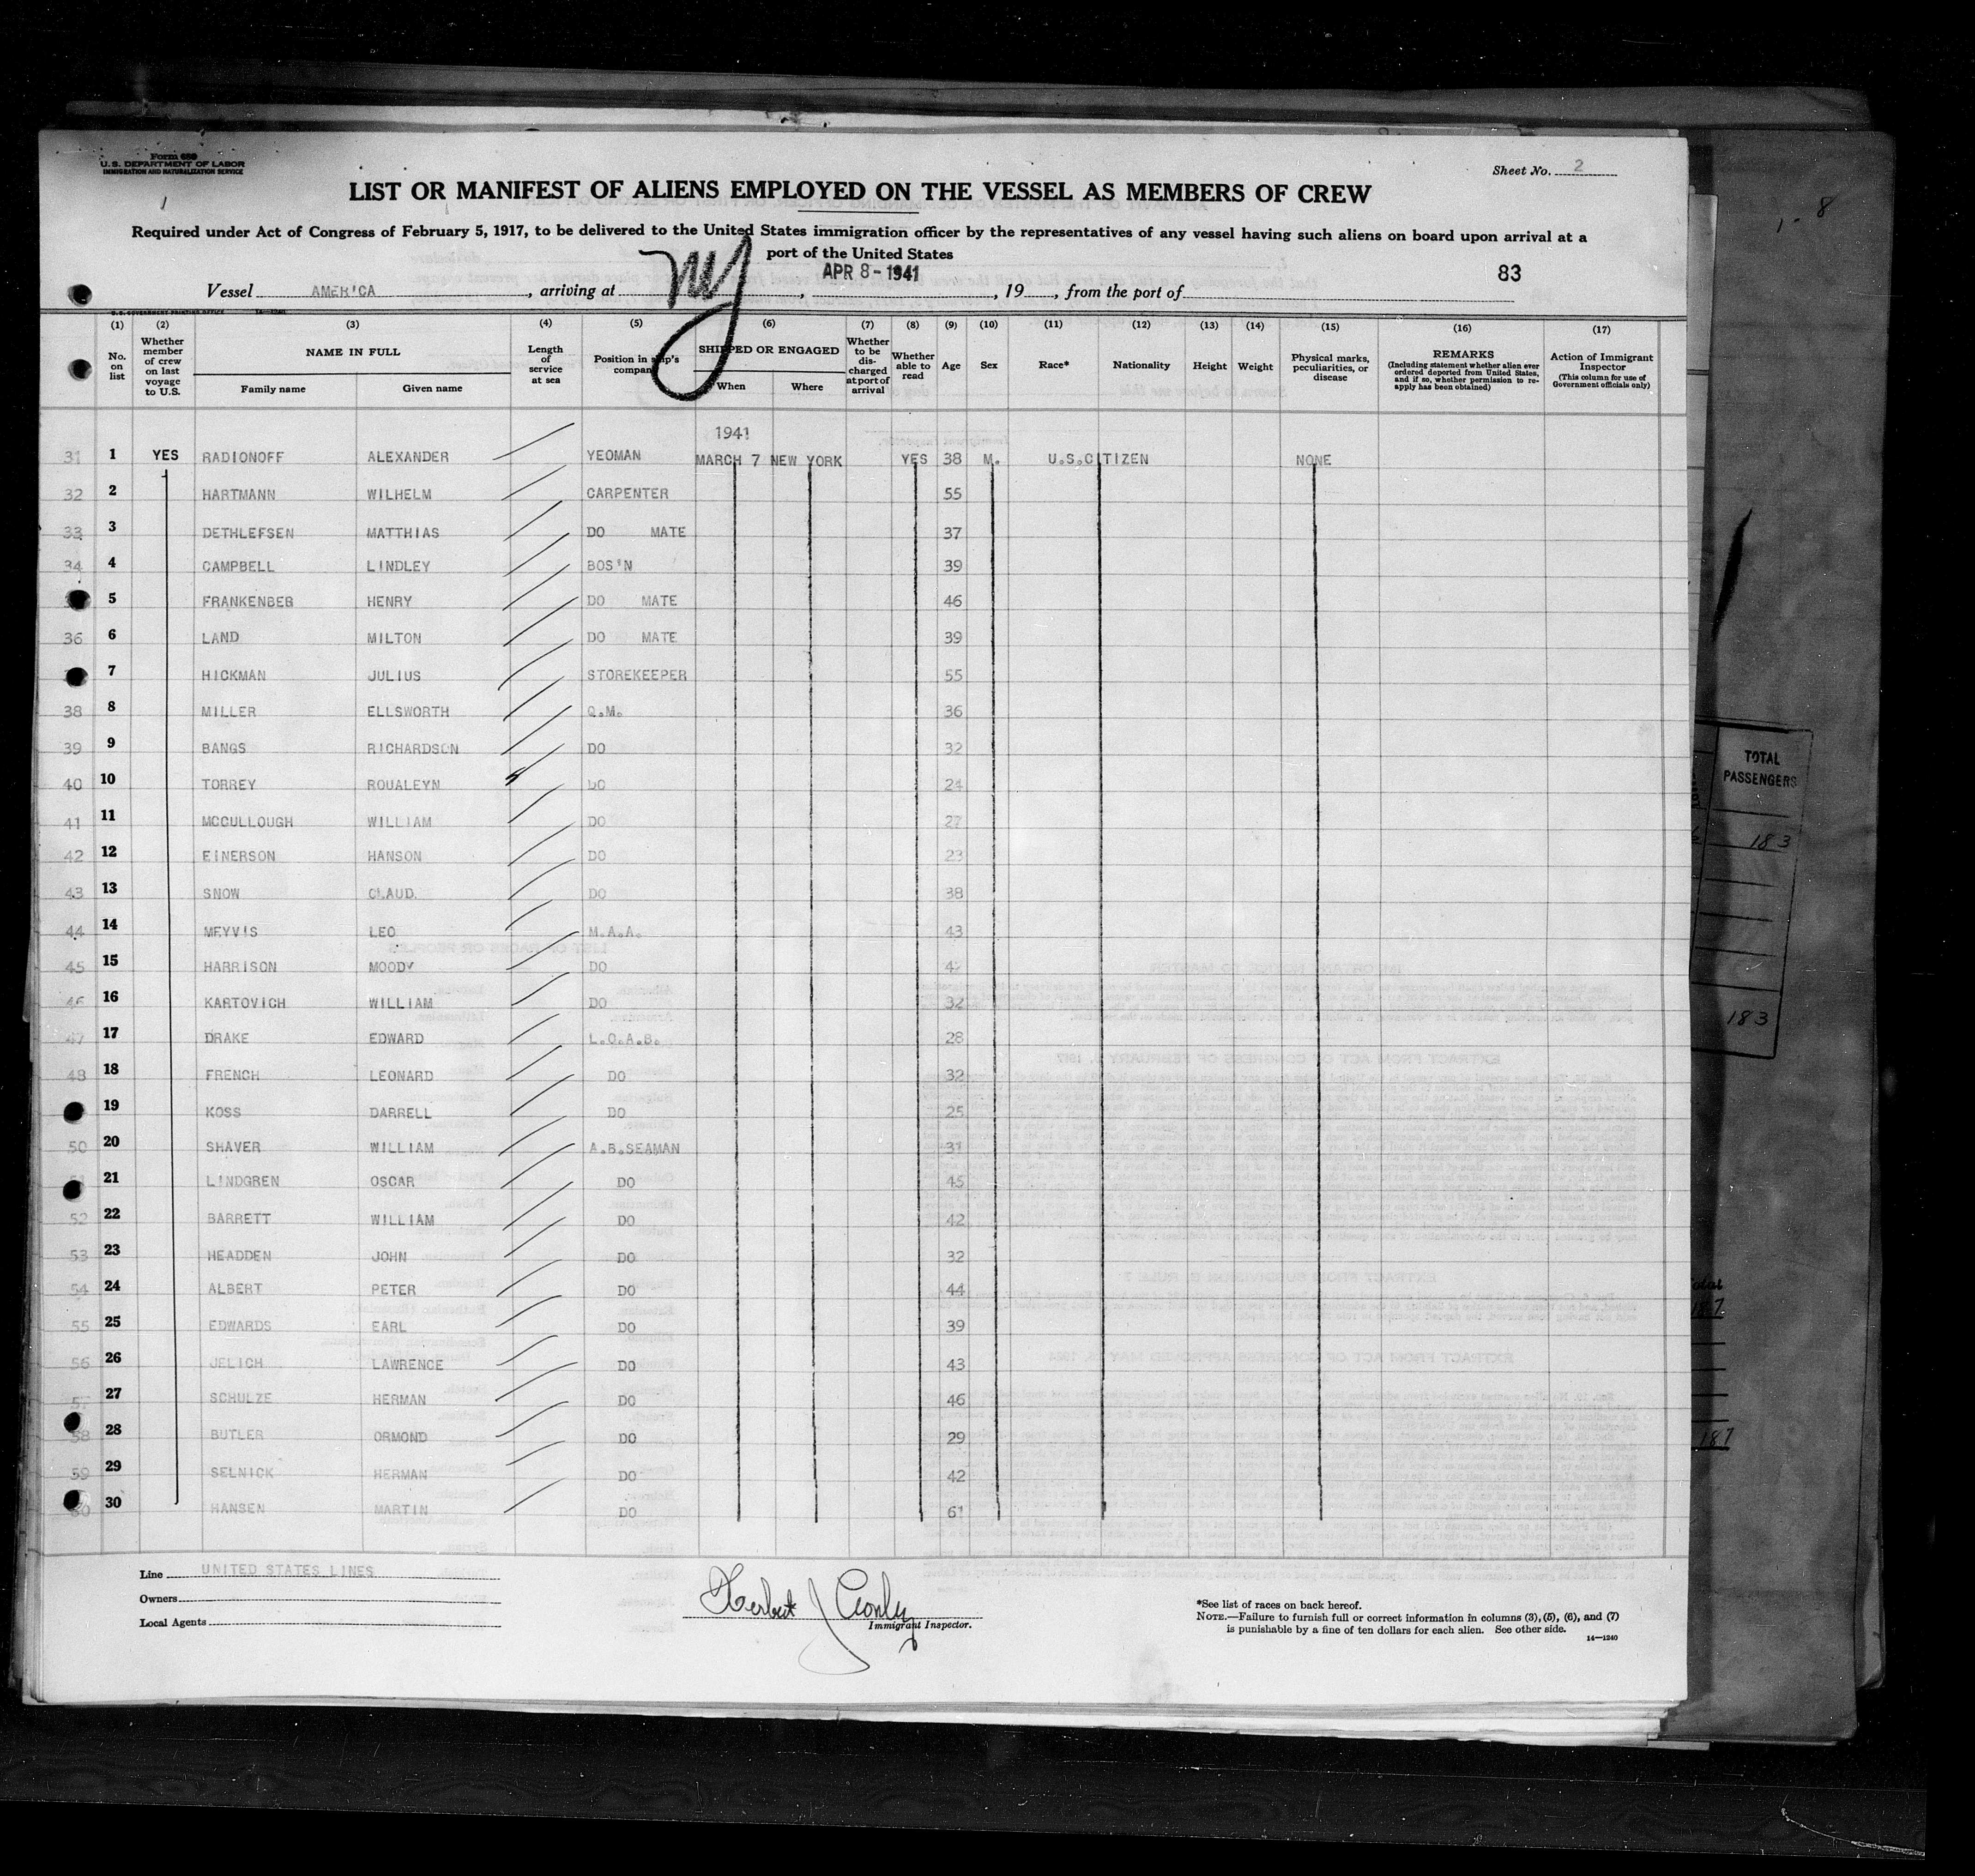 Form 680
U.S. DEPARTMENT OF LABOR
IMMIGRATION AND NATURALIZATION SERVICE
Sheet No. 2
LIST OR MANIFEST OF ALIENS EMPLOYED ON THE VESSEL AS MEMBERS OF CREW
Required under Act of Congress of February 5, 1917, to be delivered to the United States immigration officer by the representatives of any vessel having such aliens on board upon arrival at a
port of the United States
APR 8-1941
83
Vessel AMERICA, arriving at NY, , 19 , from the port of
U.S. GOVERNMENT PRINTING OFFICE
(1) (2) (3) (4) (5) (6) (7) (8) (9) (10) (11) (12) (13) (14) (15) (16) (17)
No. on list
Whether member of crew on last voyage to U.S.
NAME IN FULL
Family name
Given name
Length of service at sea
Position in ship's company
SHIPPED OR ENGAGED
When
Where
Whether to be discharged at port of arrival
Whether able to read
Age
Sex
Race*
Nationality
Height
Weight
Physical marks, peculiarities, or disease
REMARKS
(Including statement whether alien ever ordered deported from United States, and if so, whether permission to reapply has been obtained)
Action of Immigrant Inspector
(This column for use of Government officials only)
1941
31 1 YES RADIONOFF ALEXANDER YEOMAN MARCH 7 NEW YORK YES 38 M. U.S.CITIZEN NONE
32 2 HARTMANN WILHELM CARPENTER 55
33 3 DETHLEFSEN MATTHIAS DO MATE 37
34 4 CAMPBELL LINDLEY BOS'N 39
5 FRANKENBER HENRY DO MATE 46
36 6 LAND MILTON DO MATE 39
7 HICKMAN JULIUS STOREKEEPER 55
38 8 MILLER ELLSWORTH Q.M. 36
39 9 BANGS RICHARDSON DO 32
40 10 TORREY ROUALEYN DO 24
41 11 MCCULLOUGH WILLIAM DO 27
42 12 EINERSON HANSON DO 23
43 13 SNOW CLAUD DO 38
44 14 MEYVIS LEO M.A.A. 43
45 15 HARRISON MOODY DO
46 16 KARTOVICH WILLIAM DO 32
47 17 DRAKE EDWARD L.O.A.B. 28
48 18 FRENCH LEONARD DO 32
19 KOSS DARRELL DO 25
50 20 SHAVER WILLIAM A.B.SEAMAN 31
21 LINDGREN OSCAR DO 45
52 22 BARRETT WILLIAM DO 42
53 23 HEADDEN JOHN DO 32
54 24 ALBERT PETER DO 44
55 25 EDWARDS EARL DO 39
56 26 JELICH LAWRENCE DO 43
27 SCHULZE HERMAN DO 46
58 28 BUTLER ORMOND DO 29
59 29 SELNICK HERMAN DO 42
60 30 HANSEN MARTIN DO 61
Line UNITED STATES LINES
Owners
Local Agents
Immigrant Inspector.
*See list of races on back hereof.
NOTE.—Failure to furnish full or correct information in columns (3), (5), (6), and (7)
is punishable by a fine of ten dollars for each alien. See other side.
14—1240
TOTAL
PASSENGERS
183
183
187
187